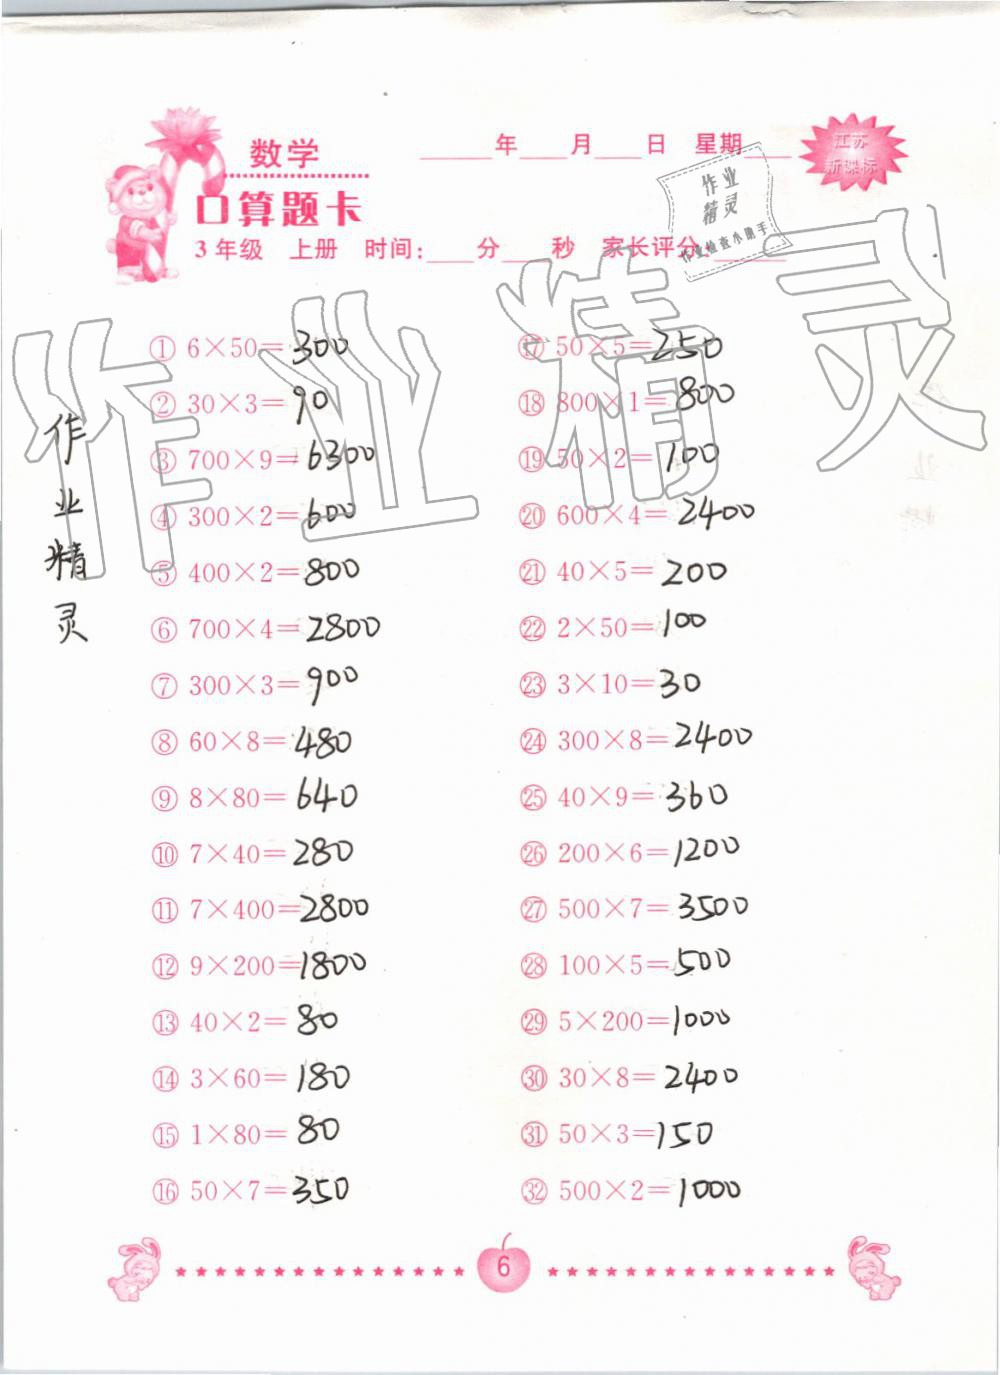 数学
____年____月____日 星期____
江苏
新课标
口算题卡
3年级 上册 时间:____分____秒 家长评分:____
作业
精灵
作业检查小助手
作业精灵
作业精灵
① 6×50=300
② 30×3=90
③ 700×9=6300
④ 300×2=600
⑤ 400×2=800
⑥ 700×4=2800
⑦ 300×3=900
⑧ 60×8=480
⑨ 8×80=640
⑩ 7×40=280
⑪ 7×400=2800
⑫ 9×200=1800
⑬ 40×2=80
⑭ 3×60=180
⑮ 1×80=80
⑯ 50×7=350
⑰ 50×5=250
⑱ 800×1=800
⑲ 50×2=100
⑳ 600×4=2400
㉑ 40×5=200
㉒ 2×50=100
㉓ 3×10=30
㉔ 300×8=2400
㉕ 40×9=360
㉖ 200×6=1200
㉗ 500×7=3500
㉘ 100×5=500
㉙ 5×200=1000
㉚ 30×8=2400
㉛ 50×3=150
㉜ 500×2=1000
6